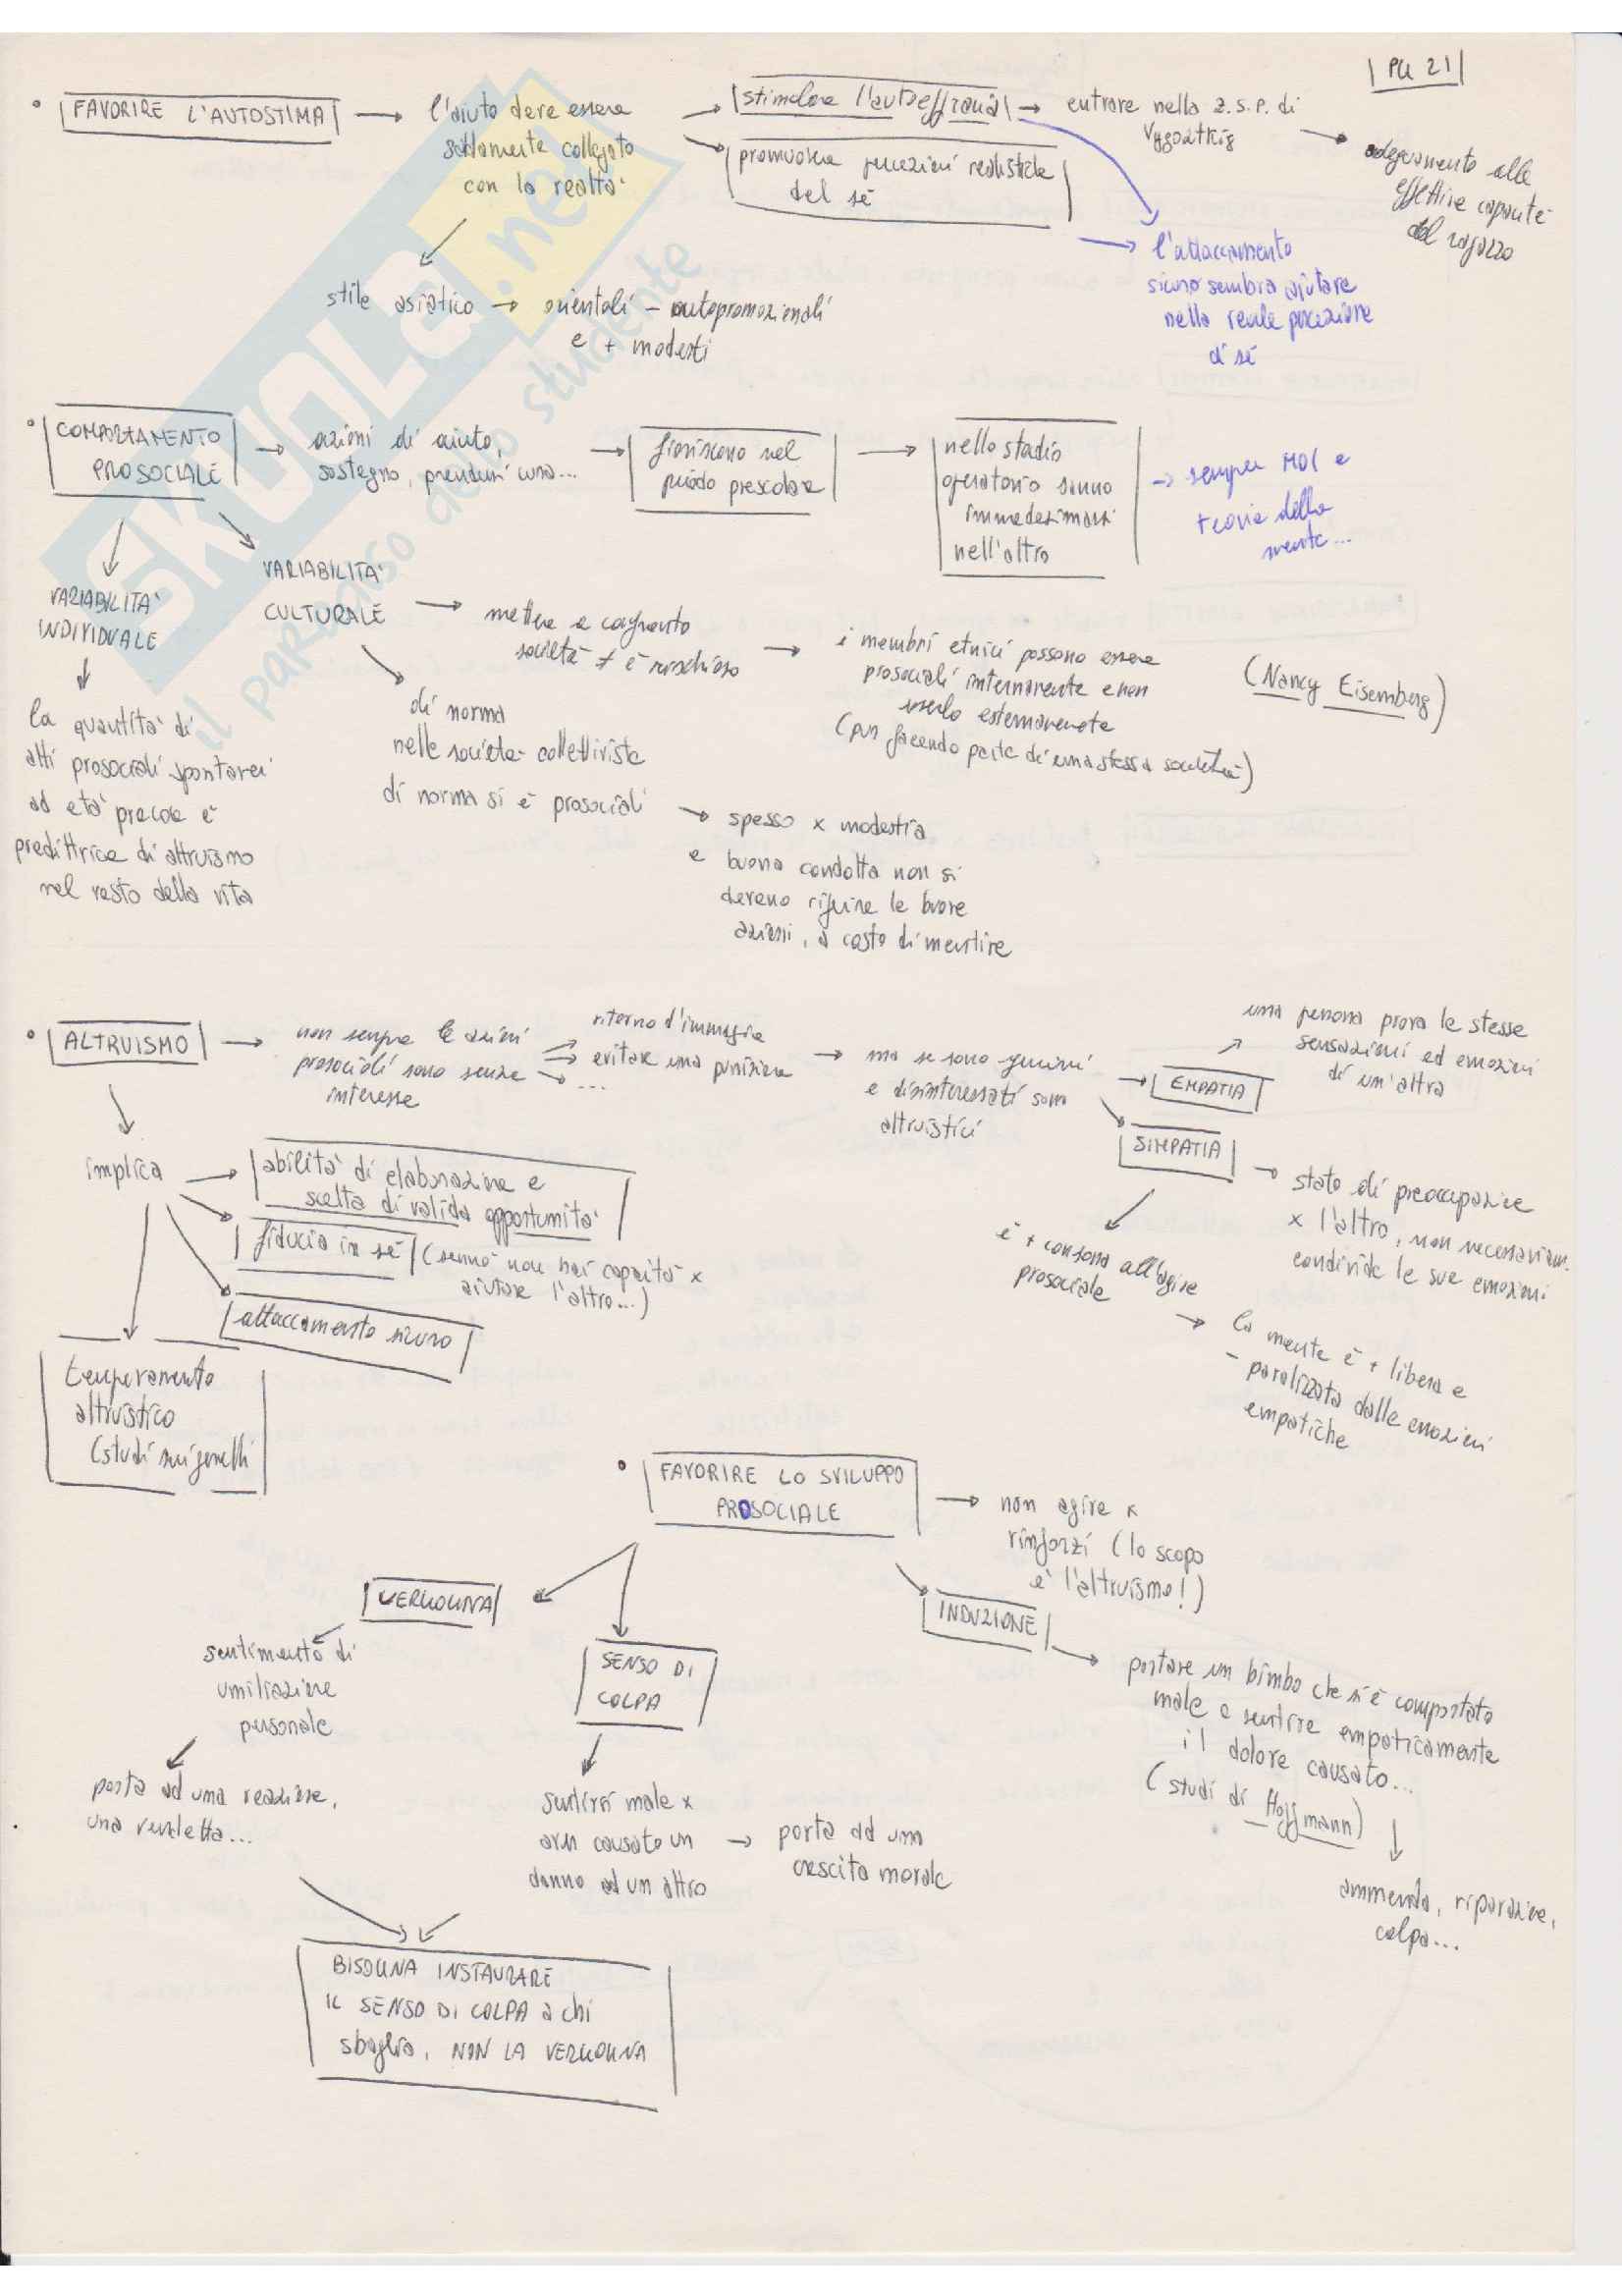 PG 21
FAVORIRE L'AUTOSTIMA
l'aiuto deve essere
saldamente collegato
con la realtà
stimolare l'autoefficacia
promuovere percezioni realistiche
del sé
entrare nella z.s.p. di
Vygotskij
adeguamento alle
effettive capacità
del ragazzo
l'attaccamento
sicuro sembra aiutare
nella reale percezione
di sé
stile asiatico
orientali - autopromozionali
e + modesti
COMPORTAMENTO
PROSOCIALE
azioni di aiuto,
sostegno, prendersi cura...
fioriscono nel
periodo prescolare
nello stadio
operatorio sanno
immedesimarsi
nell'altro
sempre MOI e
teoria della
mente...
VARIABILITA'
INDIVIDUALE
VARIABILITA'
CULTURALE
mettere a confronto
società ≠ è rischioso
i membri etnici possono essere
prosociali internamente e non
esserlo esternamente
(pur facendo parte di una stessa società)
(Nancy Eisemberg)
la quantità di
atti prosociali spontanei
ad età precoce è
predittrice di altruismo
nel resto della vita
di norma
nelle società collettiviste
di norma si è prosociali
spesso x modestia
e buona condotta non si
devono riferire le buone
azioni, a costo di mentire
ALTRUISMO
non sempre le azioni
prosociali sono senza
interesse
ritorno d'immagine
evitare una punizione
...
ma se sono genuini
e disinteressati sono
altruistici
EMPATIA
una persona prova le stesse
sensazioni ed emozioni
di un'altra
SIMPATIA
stato di preoccupazione
x l'altro, non necessariam.
condivide le sue emozioni
è + consona all'agire
prosociale
la mente è + libera e
- paralizzata dalle emozioni
empatiche
implica
abilità di elaborazione e
scelta di valida opportunità
fiducia in sé (sennò non hai capacità x
aiutare l'altro...)
attaccamento sicuro
temperamento
altruistico
(studi sui gemelli
FAVORIRE LO SVILUPPO
PROSOCIALE
non agire x
rinforzi (lo scopo
è l'altruismo!)
VERGOGNA
sentimento di
umiliazione
personale
porta ad una reazione,
una vendetta...
SENSO DI
COLPA
sentirsi male x
aver causato un
danno ad un altro
porta ad una
crescita morale
INDUZIONE
portare un bimbo che si è comportato
male a sentire empaticamente
il dolore causato...
(studi di Hoffmann)
ammenda, riparazione,
colpa...
BISOGNA INSTAURARE
IL SENSO DI COLPA a chi
sbaglia, NON LA VERGOGNA
SKUOLA.net
il paradiso dello studente